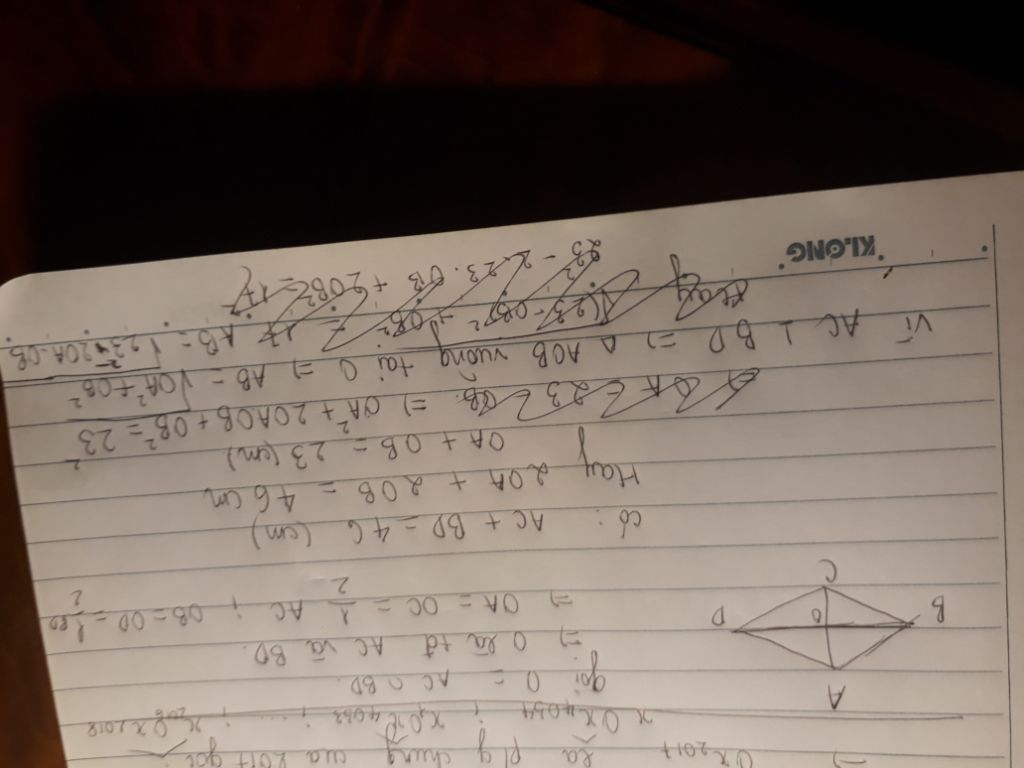 => Ox2017 là p/g chung của 2017 góc
x O x4034 ; x2 O x4033 ; ... ; x2018 O x2018
gọi O = AC ∩ BD.
=> O là tđ AC và BD.
=> OA = OC = 1/2 AC ; OB = OD = 1/2 BD
A
B
O
D
C
có: AC + BD = 46 (cm)
Hay 2OA + 2OB = 46 cm
OA + OB = 23 (cm)
=> OA = 23 - OB. => OA² + 2OAOB + OB² = 23²
Vì AC ⊥ BD => Δ AOB vuông tại O => AB = √OA² + OB²
AB = √23² - 2OA.OB
Hay √(23 - OB)² + OB² = 17
23² - 2.23.OB + 2OB² = 17
KLONG